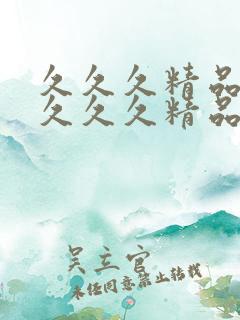 久久久精品
久久久精品
吴立官
未经同意禁止转载